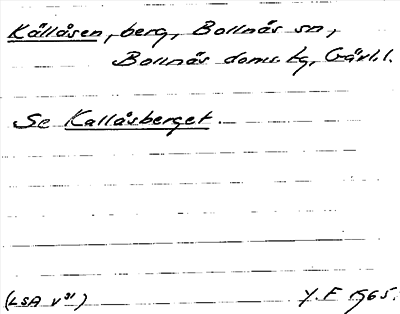 Kållåsen, berg, Bollnäs sn,
Bollnäs doms.tg, Gävl.l.
Se Kallåsberget.
(LSA V 31) Y.F 1965.